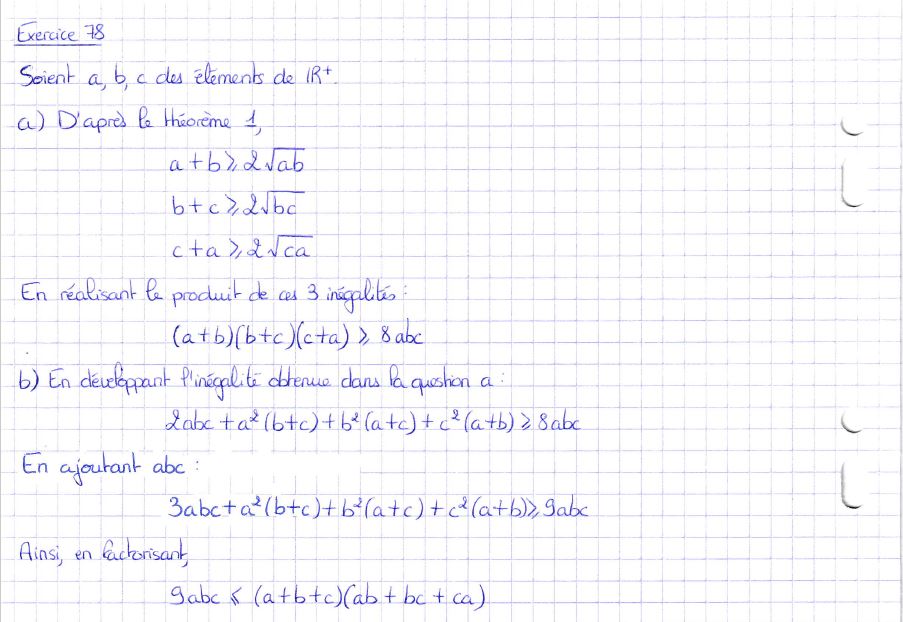 Exercice 78
Soient a, b, c des éléments de ℝ⁺.
a) D'après le théorème 1,
a + b ⩾ 2√ab
b + c ⩾ 2√bc
c + a ⩾ 2√ca
En réalisant le produit de ces 3 inégalités :
(a+b)(b+c)(c+a) ⩾ 8abc
b) En développant l'inégalité obtenue dans la question a :
2abc + a²(b+c) + b²(a+c) + c²(a+b) ⩾ 8abc
En ajoutant abc :
3abc + a²(b+c) + b²(a+c) + c²(a+b) ⩾ 9abc
Ainsi, en factorisant,
9abc ⩽ (a+b+c)(ab + bc + ca)